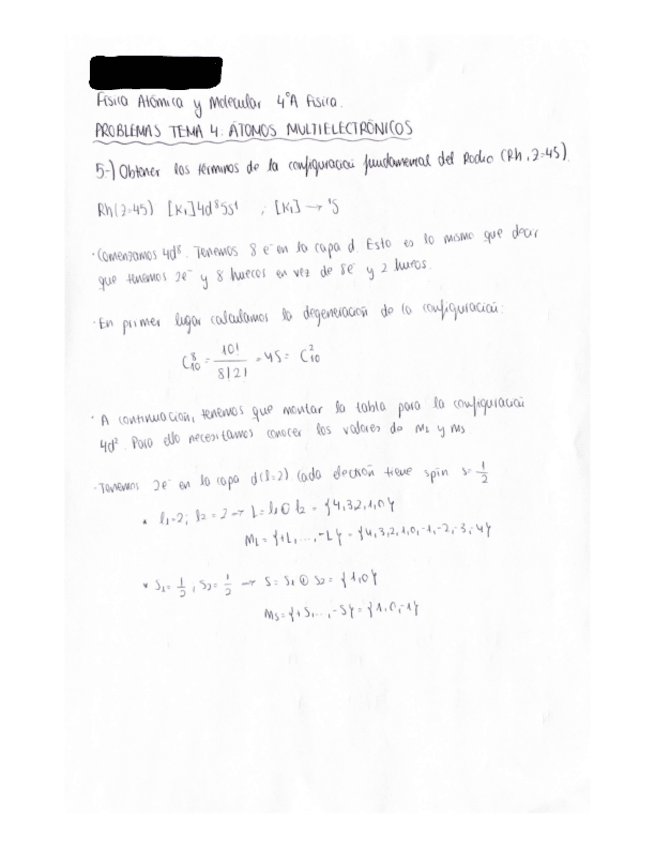 Física Atómica y Molecular 4ºA Física.
PROBLEMAS TEMA 4: ÁTOMOS MULTIELECTRÓNICOS
5.-) Obtener los términos de la configuración fundamental del Rodio (Rh, Z=45).
Rh(Z=45) [Kr]4d⁸5s¹ ; [Kr] → ¹S
· Comenzamos 4d⁸. Tenemos 8 e⁻ en la capa d. Esto es lo mismo que decir
que tenemos 2e⁻ y 8 huecos en vez de 8e⁻ y 2 huecos.
· En primer lugar calculamos la degeneración de la configuración:
C₁₀⁸ = 10! / 8!2! = 45 = C₁₀²
· A continuación, tenemos que montar la tabla para la configuración
4d². Para ello necesitamos conocer los valores de ML y MS
· Tenemos 2e⁻ en la capa d(l=2) cada electrón tiene spin s=1/2
* l₁=2; l₂=2 → L=l₁⊕l₂ = {4,3,2,1,0}
ML = {+L,...,-L} = {4,3,2,1,0,-1,-2,-3,-4}
* S₁= 1/2, S₂= 1/2 → S= S₁⊕S₂= {1,0}
MS= {+S,...,-S}= {1,0,-1}